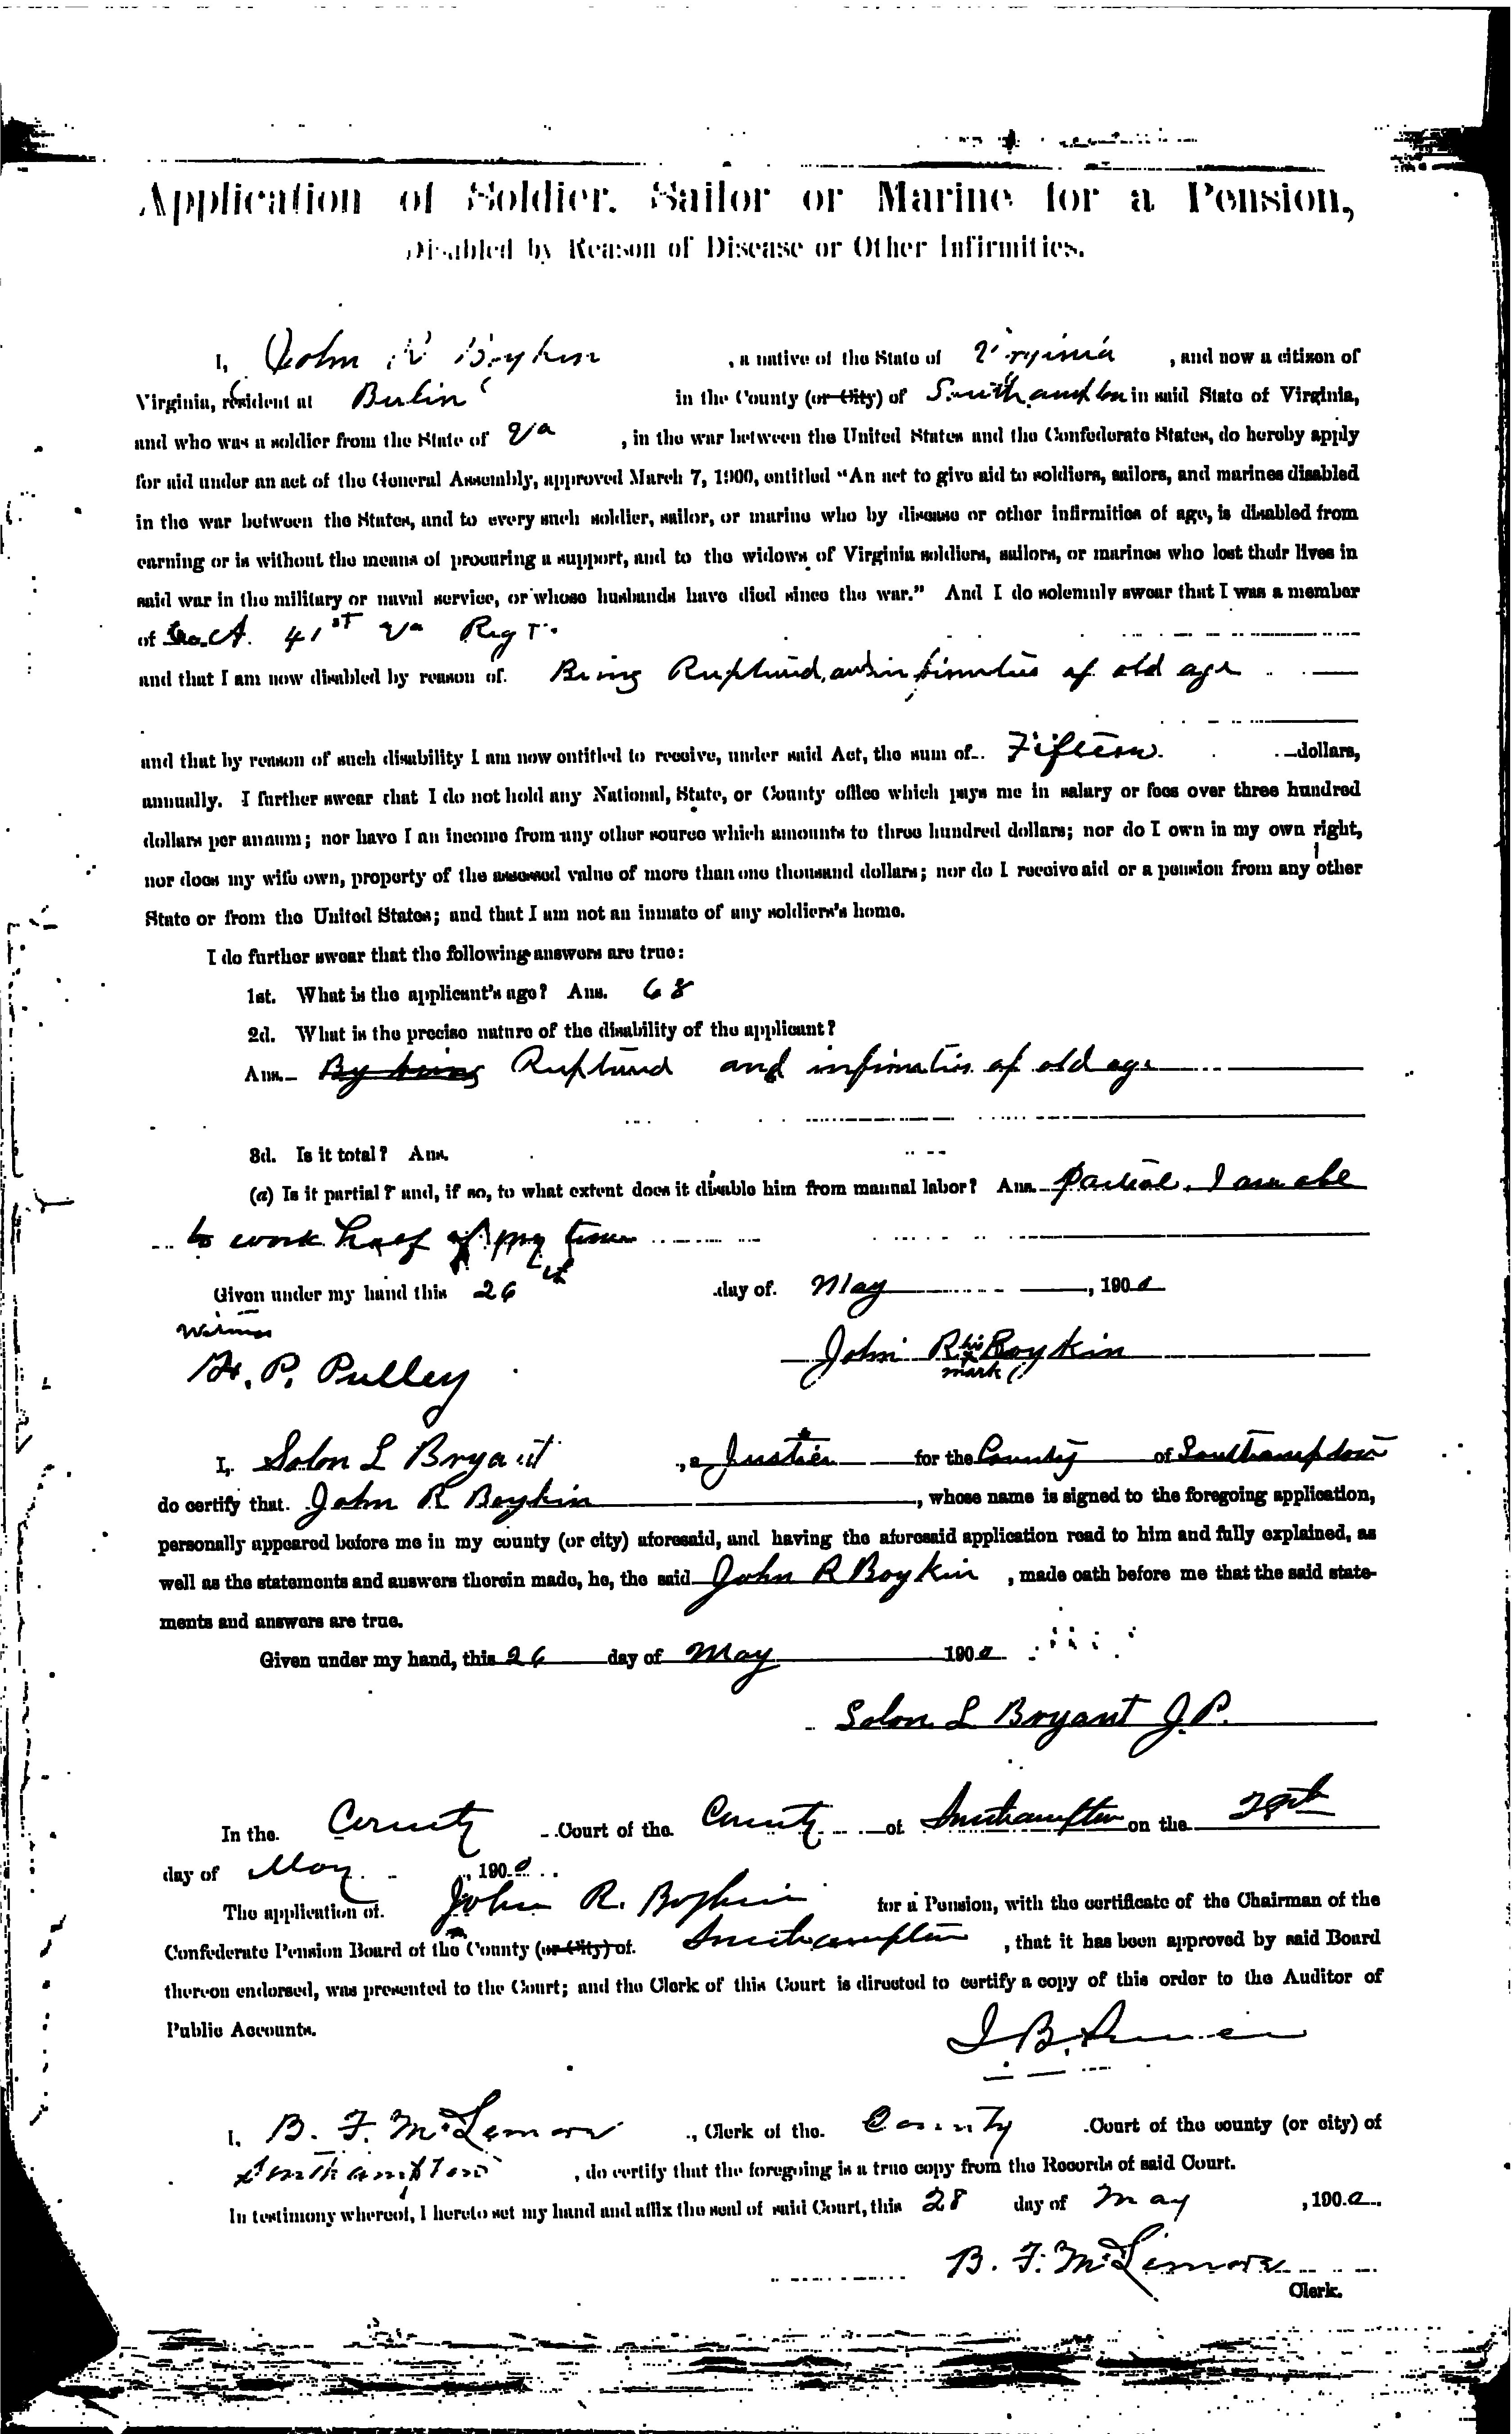 Application of Soldier, Sailor or Marine for a Pension,
Disabled by Reason of Disease or Other Infirmities.
I, John R Boykin, a native of the State of Virginia, and now a citizen of
Virginia, resident at Berlin in the County (or City) of Southampton in said State of Virginia,
and who was a soldier from the State of Va, in the war between the United States and the Confederate States, do hereby apply
for aid under an act of the General Assembly, approved March 7, 1900, entitled "An act to give aid to soldiers, sailors, and marines disabled
in the war between the States, and to every such soldier, sailor, or marine who by disease or other infirmities of age, is disabled from
earning or is without the means of procuring a support, and to the widows of Virginia soldiers, sailors, or marines who lost their lives in
said war in the military or naval service, or whose husbands have died since the war." And I do solemnly swear that I was a member
of Co. A. 41st Va Regt.
and that I am now disabled by reason of. Being Ruptured, and infirmities of old age
and that by reason of such disability I am now entitled to receive, under said Act, the sum of Fifteen dollars,
annually. I further swear that I do not hold any National, State, or County office which pays me in salary or fees over three hundred
dollars per annum; nor have I an income from any other source which amounts to three hundred dollars; nor do I own in my own right,
nor does my wife own, property of the assessed value of more than one thousand dollars; nor do I receive aid or a pension from any other
State or from the United States; and that I am not an inmate of any soldiers's home.
I do further swear that the following answers are true:
1st. What is the applicant's age? Ans. 68
2d. What is the precise nature of the disability of the applicant?
Ans. By being Ruptured and infirmatis of old age
3d. Is it total? Ans.
(a) Is it partial? and, if so, to what extent does it disable him from manual labor? Ans. Partial. I am able
to work half of my time
Given under my hand this 26 day of. May, 1900
Witness
H. P. Pulley
John R his x mark Boykin
I, Solon L Bryant, a Justice for the County of Southampton
do certify that. John R Boykin, whose name is signed to the foregoing application,
personally appeared before me in my county (or city) aforesaid, and having the aforesaid application read to him and fully explained, as
well as the statements and answers therein made, he, the said John R Boykin, made oath before me that the said state-
ments and answers are true.
Given under my hand, this 26 day of May 1900
Solon L Bryant J.P.
In the. County Court of the. County of Southampton on the 28th
day of May, 1900
The application of. John R. Boykin for a Pension, with the certificate of the Chairman of the
Confederate Pension Board of the County (or City) of. Southampton, that it has been approved by said Board
thereon endorsed, was presented to the Court; and the Clerk of this Court is directed to certify a copy of this order to the Auditor of
Public Accounts.
I, B. F. McLemore, Clerk of the. County Court of the county (or city) of
Southampton, do certify that the foregoing is a true copy from the Records of said Court.
In testimony whereof, I hereto set my hand and affix the seal of said Court, this 28 day of May, 1900.
B. F. McLemore
Clerk.